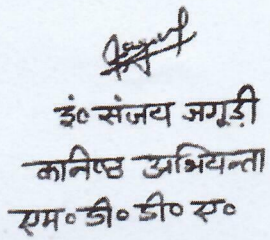 इं० संजय जगूड़ी
कनिष्ठ अभियन्ता
एम० डी० डी० ए०